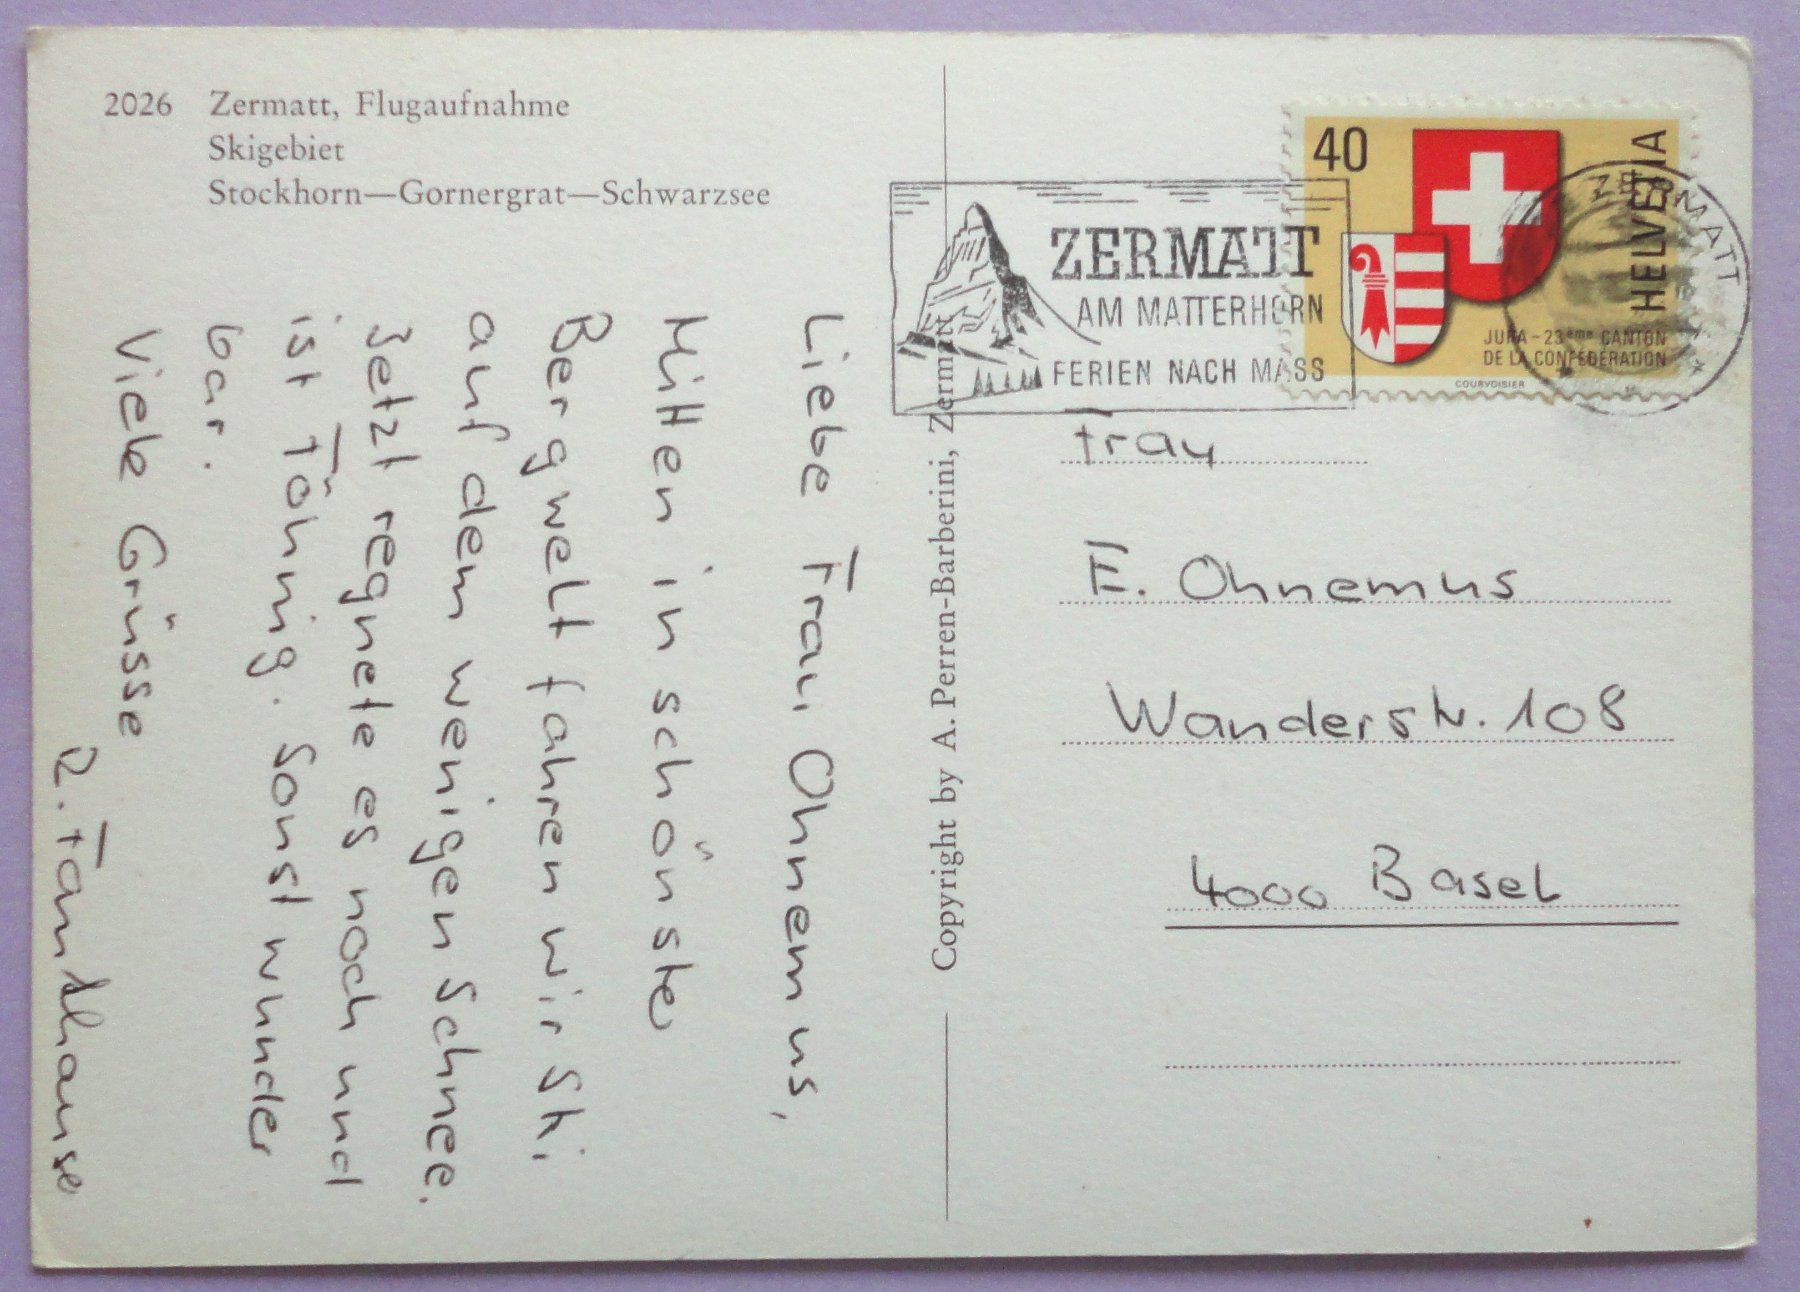 2026 Zermatt, Flugaufnahme
Skigebiet
Stockhorn—Gornergrat—Schwarzsee
Liebe Frau Ohnemus,
Mitten in schönste
Bergwelt fahren wir Ski
auf dem wenigen Schnee.
Jetzt regnete es noch und
ist Föhnig. Sonst wunder
bar.
Viele Grüsse
R.
Copyright by A. Perren-Barberini, Zermatt
ZERMATT
AM MATTERHORN
FERIEN NACH MASS
40
HELVETIA
JURA-23ème CANTON
DE LA CONFÉDÉRATION
COURVOISIER
ZERMATT
Frau
E. Ohnemus
Wanderstr. 108
4000 Basel